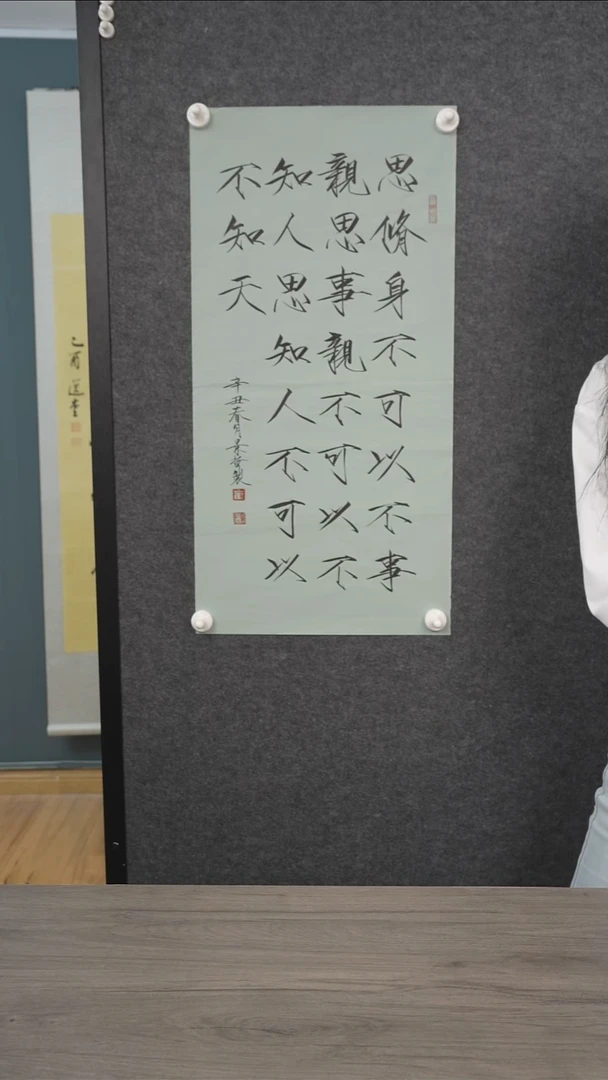 思脩身不可以不事
親思事親不可以不
知人思知人不可以
不知天
辛丑春月
製
乙酉